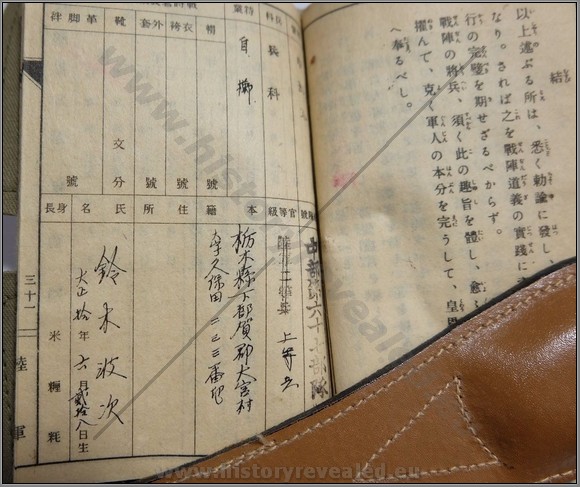 結
以上述ぶる所は、悉く勅諭に發し、
なり。されば之を戰陣道義の實踐に
行の完璧を期せざるべからず。
戰陣の將兵、須く此の趣旨を體し、愈
んで、克く軍人の本分を完うして、皇
へ奉るべし。
兵科
特業
自
帽 號
衣袴 號
外套 號
靴 文 分
革脚絆 號
中部第六十七部隊
官等級
上等兵
本籍
栃木縣下都賀郡大宮村
大字久保田二二三番地
住所
氏名
鈴木波次
大正拾年六月貳拾八日生
身長
米 糎 粍
三十一
陸軍
www.historyrevealed.eu
www.historyrevealed.eu